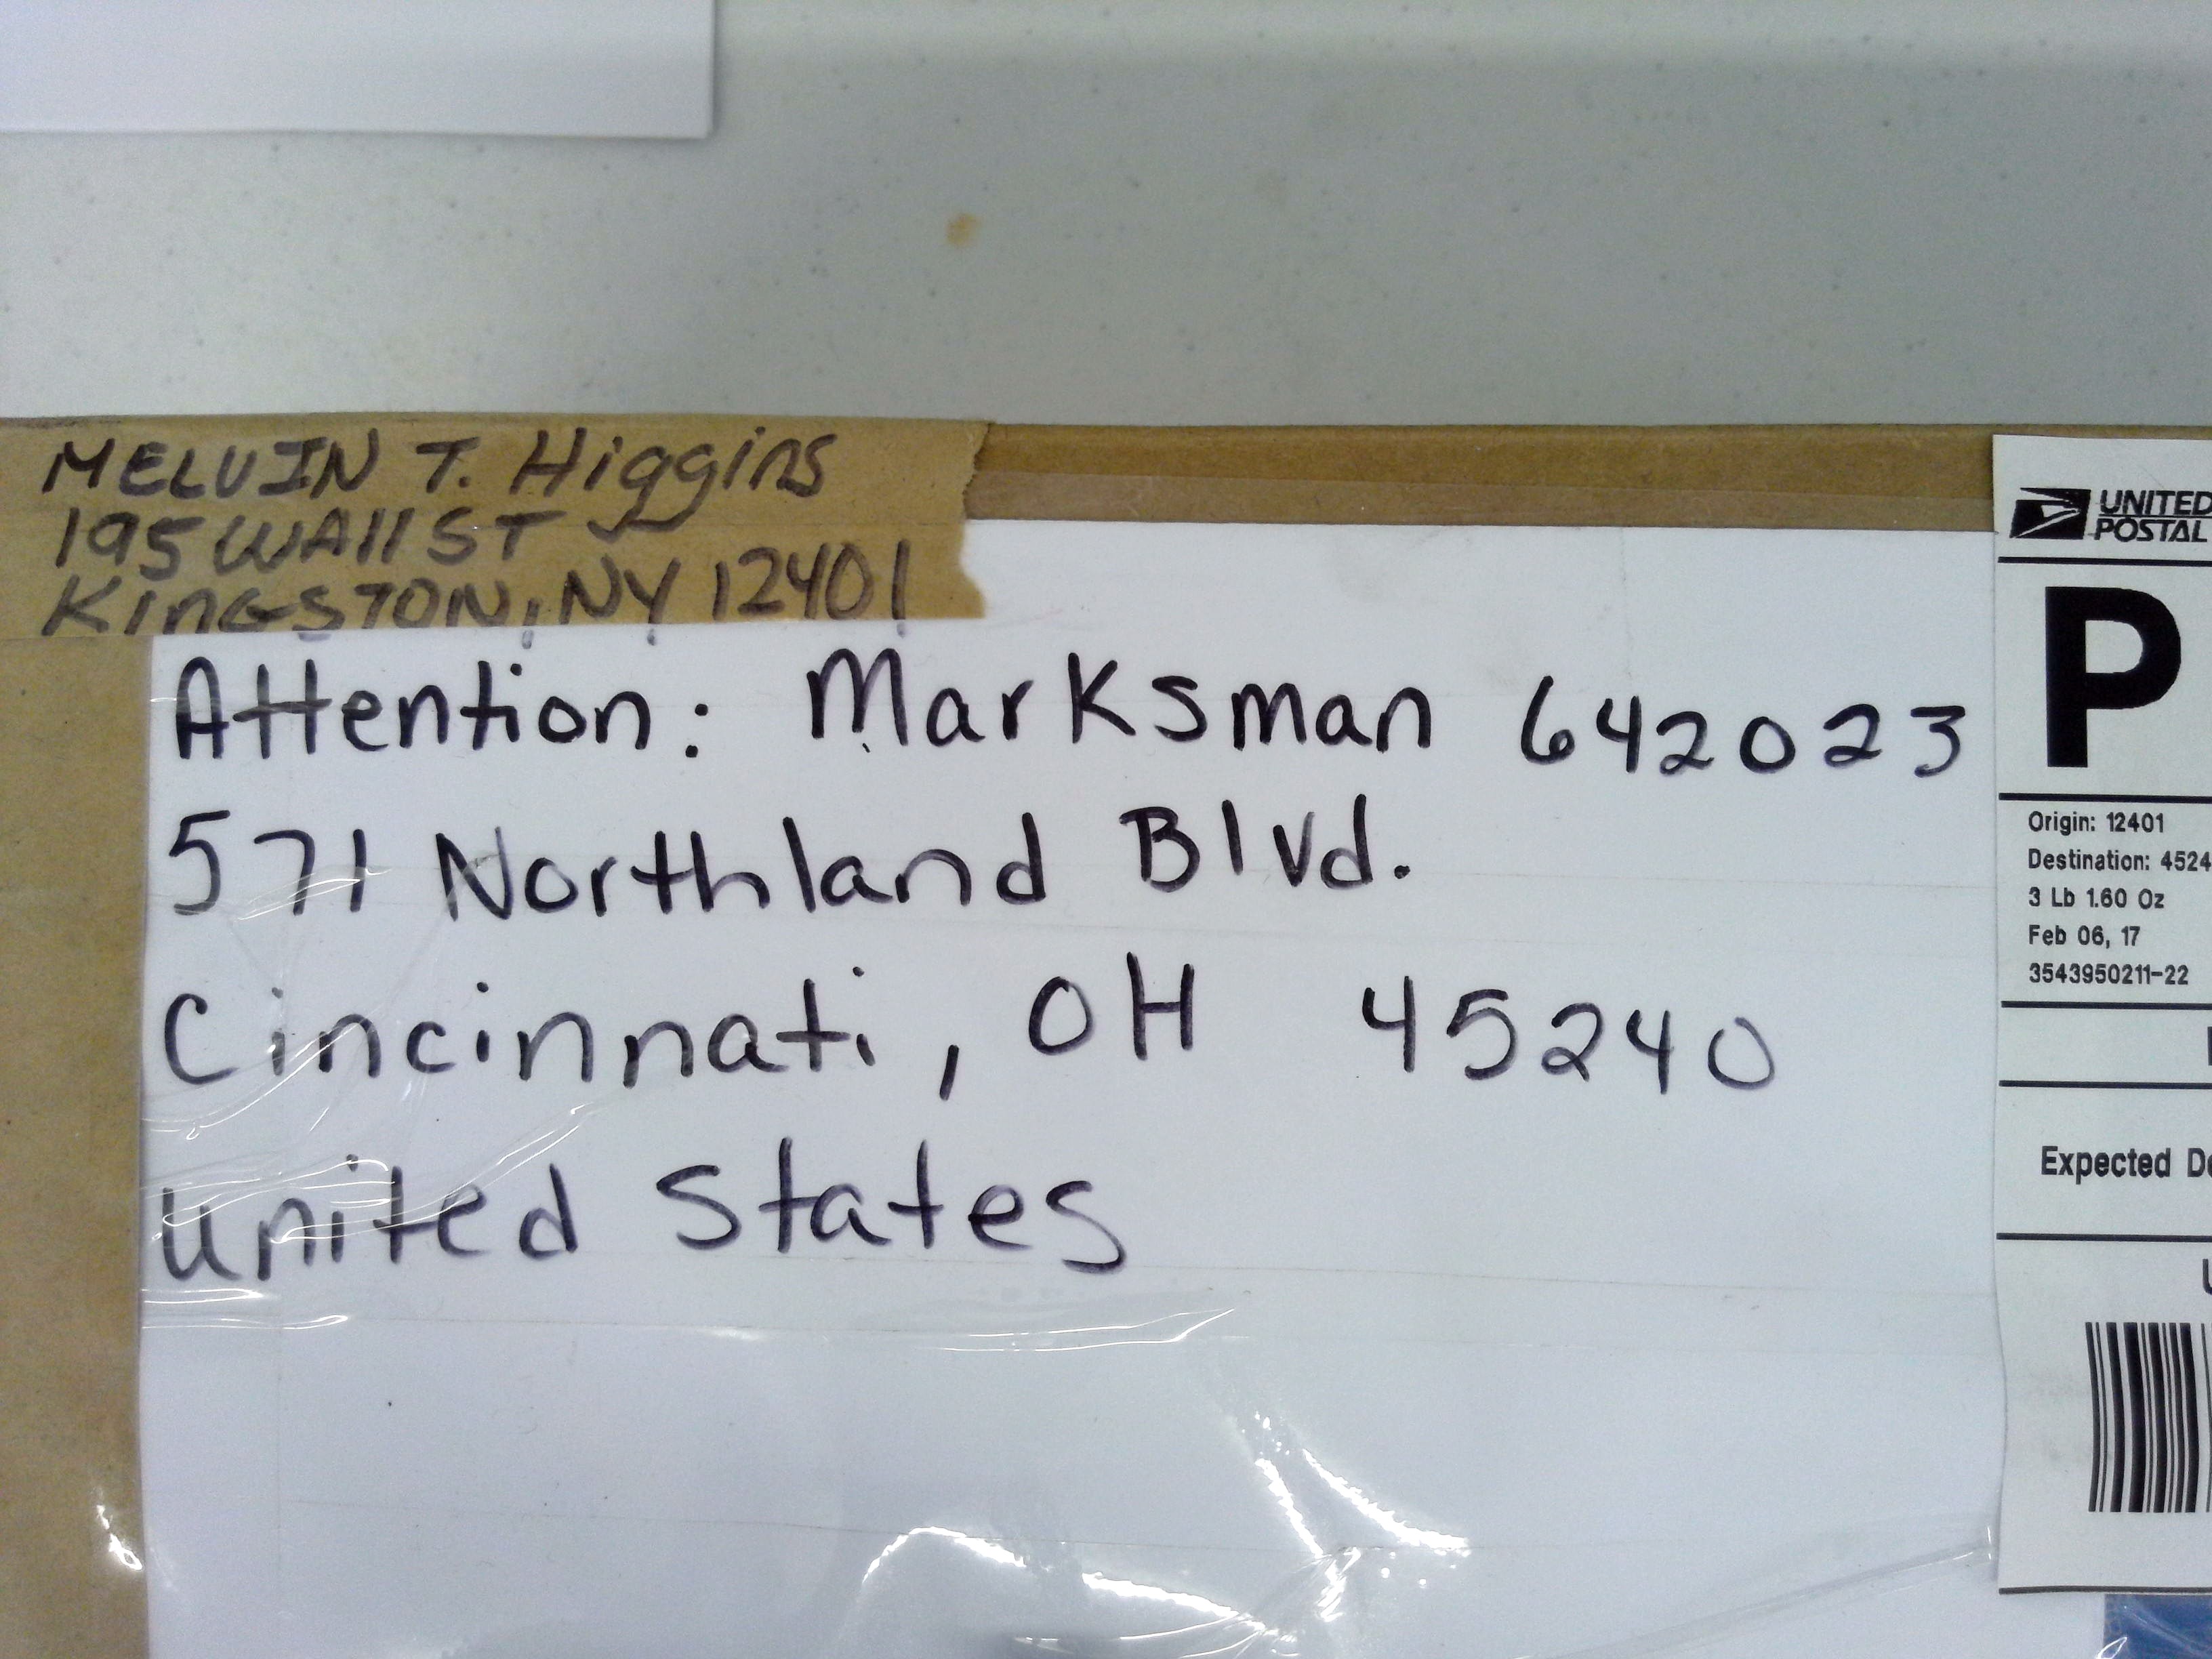 MELVIN T. Higgins
195 WAll ST
KinGSTON, NY 12401
Attention: Marksman 642023
571 Northland Blvd.
Cincinnati, OH 45240
United States
UNITED
POSTAL
P
Origin: 12401
Destination: 4524
3 Lb 1.60 Oz
Feb 06, 17
3543950211-22
Expected